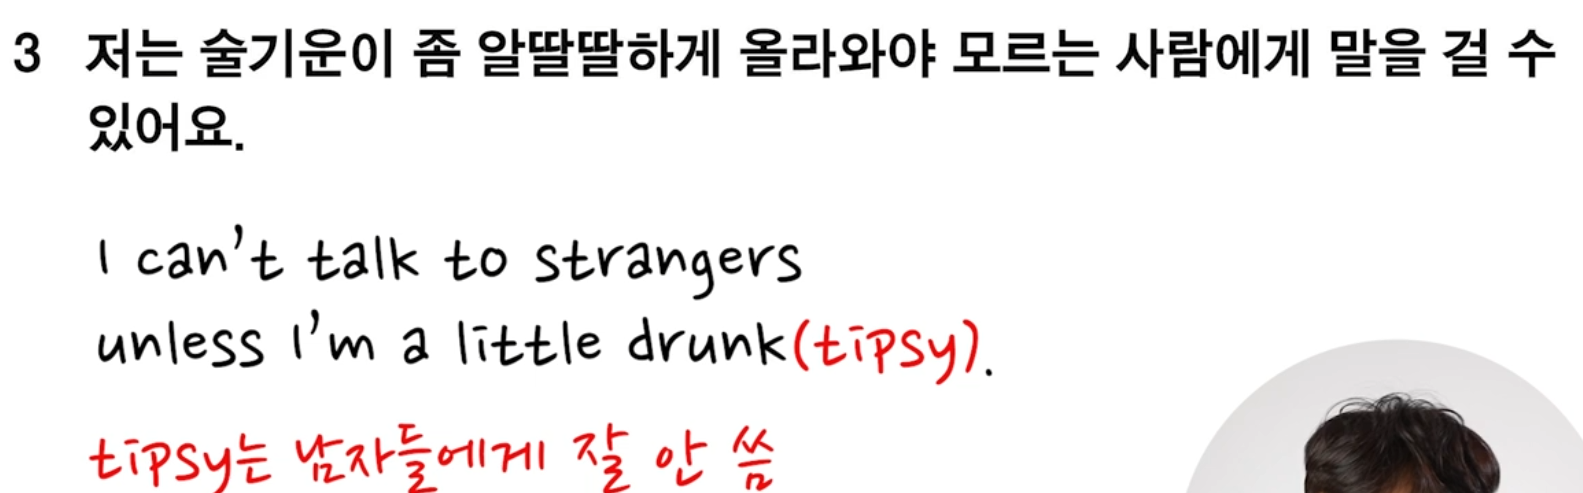 3 저는 술기운이 좀 알딸딸하게 올라와야 모르는 사람에게 말을 걸 수
있어요.
I can't talk to strangers
unless I'm a little drunk(tipsy).
tipsy는 남자들에게 잘 안 씀